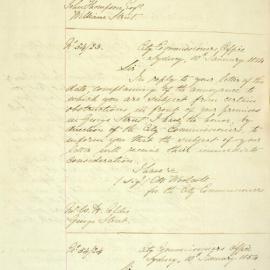 John Thompson, Esqr
William Street.
No 54/33. City Commissioners Office
Sydney, 10th January 1854
Sir
In reply to your letter of the
date, complaining of the annoyance to
which you are subject from certain
obstructions in front of your premises
in George Street I have the honor, by
direction of the City Commissioners, to
inform you that the subject of your
letter will receive their immediate
consideration.
I have &c
(Sigd)
for the City Commissioners
Mr
George Street.
No 54/34 City Commissioners Office
Sydney, 10th January 1854